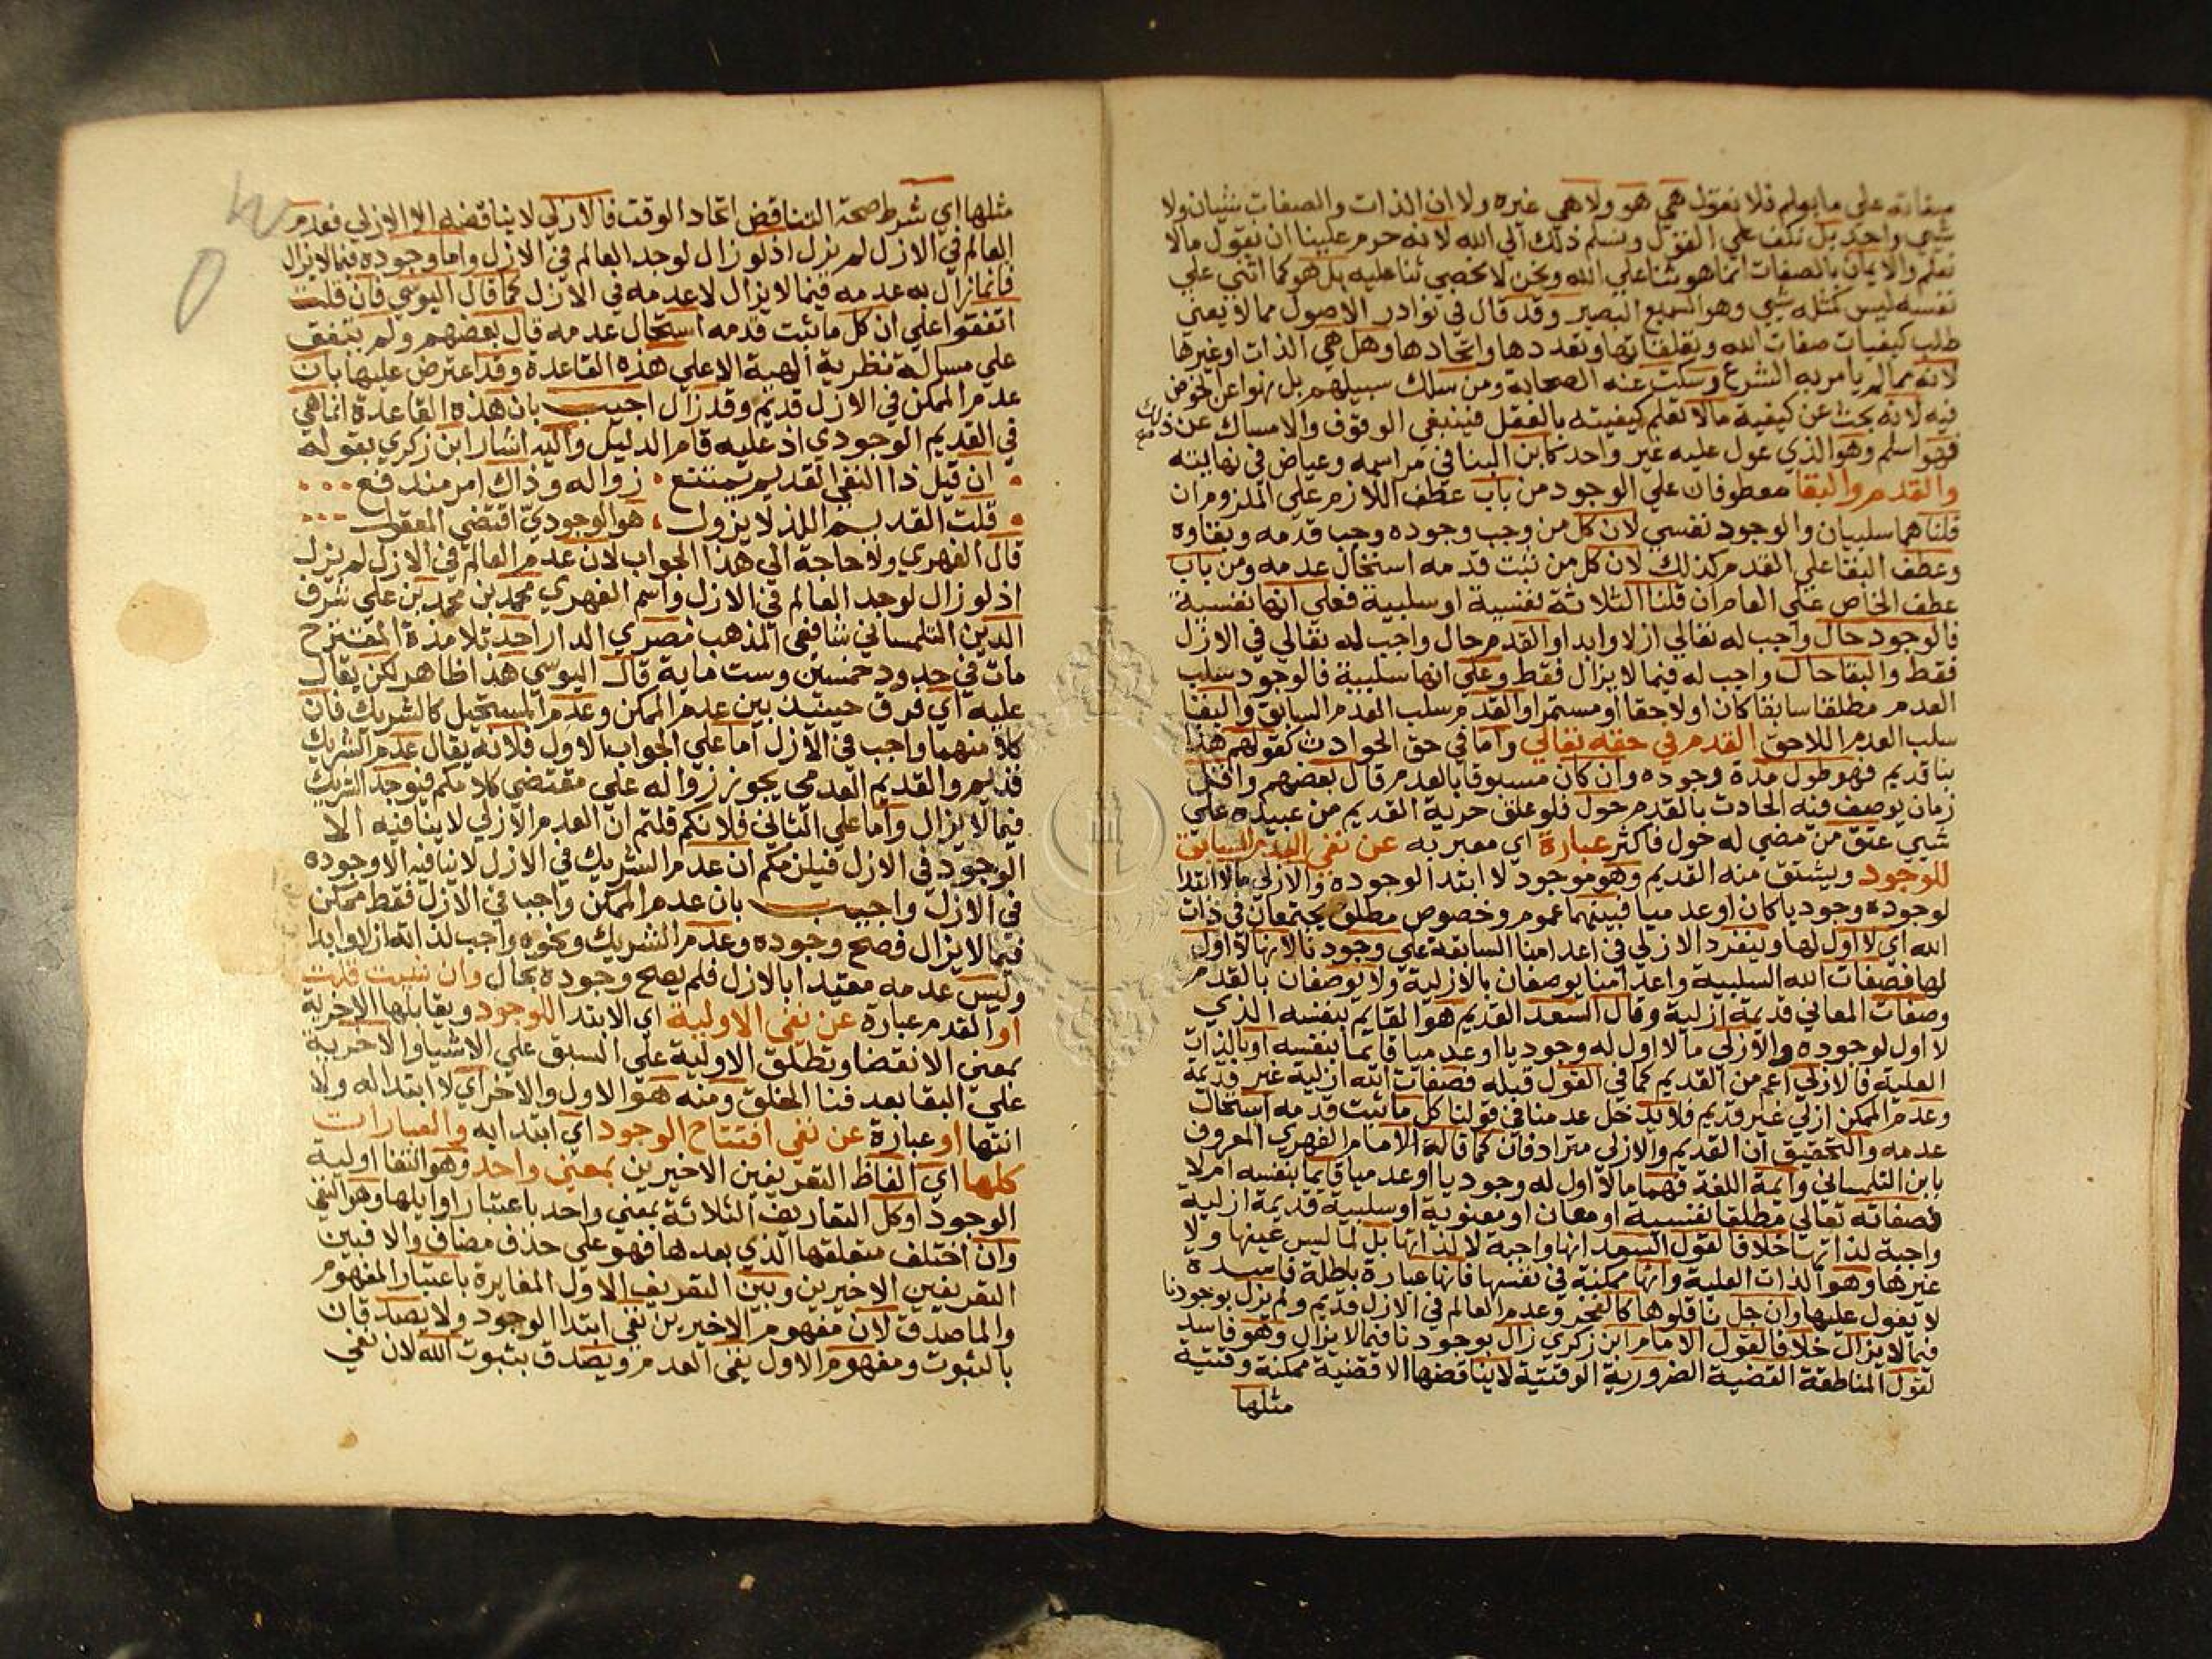 صفاته علي ما يولم فلا نقول هي هو ولا هي غيره ولا ان الذات والصفات شيئان ولا
شيي واحد بل نكف علي القول ونسلم ذلك الي الله لانه حرم علينا ان نقول مالا
نعلم والايمان بالصفات انما هو ثنا علي الله ونحن لا نحصي ثنا عليه بل هو كما اثني علي
نفسه ليس كمثله شيي وهو السميع البصير وقد قال في نوادر الاصول مما لا يعني
طلب كيفيات صفات الله وتعلقاتها وتعددها واتحادها وهل هي الذات او غيرها
لانه مما لم يامر به الشرع وسكت عنه الصحابة ومن سلك سبيلهم بل نهوا عن الخوض
فيه لانه بحث عن كيفية مالا تعلم كيفيته بالعقل فينبغي الوقوف والامساك عن ذلك
فهو اسلم وهو الذي عول عليه غير واحد كابن البنا في مراسمه وعياض في نهايته
والقدم والبقا معطوفان علي الوجود من باب عطف اللازم علي الملزوم ان
قلنا هما سلبيان والوجود نفسي لان كل من وجب وجوده وجب قدمه وبقاوه
وعطف البقا علي القدم كذلك لان كل من ثبت قدمه استحال عدمه ومن باب
عطف الخاص علي العام ان قلنا الثلاثة نفسية او سلبية فعلي انها نفسية
فالوجود حال واجب له تعالي ازلا وابدا والقدم حال واجب له تعالي في الازل
فقط والبقا حال واجب له فيما لا يزال فقط وعلي انها سلبية فالوجود سلب
العدم مطلقا سابقا كان او لاحقا او مستمرا والقدم سلب العدم السابق والبقا
سلب العدم اللاحق القدم في حقه تعالي واما في حق الحوادث كقولهم هذا
بنا قديم فهو طول مدة وجوده وان كان مسبوقا بالعدم قال بعضهم واقل
زمان يوصف فيه الحادث بالقدم حول فلو علق حرية القديم من عبيده علي
شيي عتق من مضي له حول فاكثر عبارة اي معبر به عن نفي العدم السابق
للوجود ويشتق منه القديم وهو موجود لا ابتدا لوجوده والازلي مالا ابتدا
لوجوده وجوديا كان او عدميا فبينهما عموم وخصوص مطلق يجتمعان في ذات
الله اي لا اول لها وينفرد الازلي في اعدامنا السابقة علي وجودنا لانها لا اول
لها فصفات الله السلبية واعدامنا يوصفان بالازلية ولا يوصفان بالقدم
وصفات المعاني قديمة ازلية وقال السعد القديم هو القايم بنفسه الذي
لا اول لوجوده والازلي مالا اول له وجوديا او عدميا قايما بنفسه او بالذات
العلية فالازلي اعم من القديم كما في القول قبله فصفات الله ازلية غير قديمة
وعدم الممكن ازلي غير قديم فلا يدخل عدمنا في قولنا كل ما ثبت قدمه استحال
عدمه والتحقيق ان القديم والازلي مترادفان كما قاله الامام الفهري المعروف
بابن التلمساني وايمة اللغة فهما مالا اول له وجوديا او عدميا قايما بنفسه ام لا
فصفاته تعالي مطلقا نفسية او معان او معنوية او سلبية قديمة ازلية
واجبة لذاتها خلافا لقول السعد انها واجبة لا لذاتها بل لما ليس عينها ولا
غيرها وهو الذات العلية وانها ممكنة في نفسها فانها عبارة باطلة فاسدة
لا يعول عليها وان جل ناقلوها كالفخر وعدم العالم في الازل قديم ولم يزل بوجودنا
فيما لا يزال خلافا لقول الامام ابن زكري زال بوجودنا فيما لا يزال وهو فاسد
لقول المناطقة القضية الضرورية الوقتية لا يناقضها الا قضية ممكنة وقتية
مثلها
مثلها اي شرط صحة التناقض اتحاد الوقت فالازلي لا يناقضه الا الازلي فعدم
العالم في الازل لم يزل اذ لو زال لوجد العالم في الازل واما وجوده فيما لا يزال
فانما زال به عدمه فيما لا يزال لا عدمه في الازل كما قال اليوسي فان قلت
اتفقوا علي ان كل ما ثبت قدمه استحال عدمه قال بعضهم ولم يتفق
علي مسالة نظرية الهية الا علي هذه القاعدة وقد اعترض عليها بان
عدم الممكن في الازل قديم وقد زال اجيب بان هذه القاعدة انما هي
في القديم الوجودي اذ عليه قام الدليل واليه اشار ابن زكري بقوله
ان قيل ذا النفي القديم يمتنع ، زواله وذاك امر مندفع
قلت القديم اللذ لا يزول ، هو الوجودي اقتضي المعقول
قال الفهري ولا حاجة الي هذا الجواب لان عدم العالم في الازل لم يزل
اذ لو زال لوجد العالم في الازل واسم الفهري محمد بن محمد بن علي شرف
الدين التلمساني شافعي المذهب مصري الدار احد تلامذة المقترح
مات في حدود خمسين وست ماية قال اليوسي هذا ظاهر لكن يقال
عليه اي فرق حينيذ بين عدم الممكن وعدم المستحيل كالشريك فان
كلا منهما واجب في الازل اما علي الجواب الاول فلانه يقال عدم الشريك
قديم والقديم العدمي يجوز زواله علي مقتضي كلامكم فيوجد الشريك
فيما لا يزال واما علي الثاني فلانكم قلتم ان العدم الازلي لا ينافيه الا
الوجود في الازل فيلزمكم ان عدم الشريك في الازل لا ينافيه الا وجوده
في الازل واجيب بان عدم الممكن واجب في الازل فقط ممكن
فيما لا يزال فصح وجوده وعدم الشريك ونحوه واجب لذاته ازلا وابدا
وليس عدمه مقيدا بالازل فلم يصح وجوده بحال وان شيت قلت
او القدم عبارة عن نفي الاولية اي الابتدا للوجود ويقابلها الاخرية
بمعني الانقضا وتطلق الاولية علي السبق علي الاشيا والاخرية
علي البقا بعد فنا الخلق ومنه هو الاول والاخر اي لا ابتدا له ولا
انتها او عبارة عن نفي افتتاح الوجود اي ابتدايه والعبارات
كلها اي الفاظ التعريفين الاخيرين بمعني واحد وهو انتفا اولية
الوجود او كل التعاريف الثلاثة بمعني واحد باعتبار اوايلها وهو النفي
وان اختلف متعلقها الذي بعدها فهو علي حذف مضاف والا فبين
التعريفين الاخيرين وبين التعريف الاول المغايرة باعتبار المفهوم
والماصدق لان مفهوم الاخيرين نفي ابتدا الوجود ولا يصدقان
بالثبوت ومفهوم الاول نفي العدم ويصدق بثبوت الله لان نفي